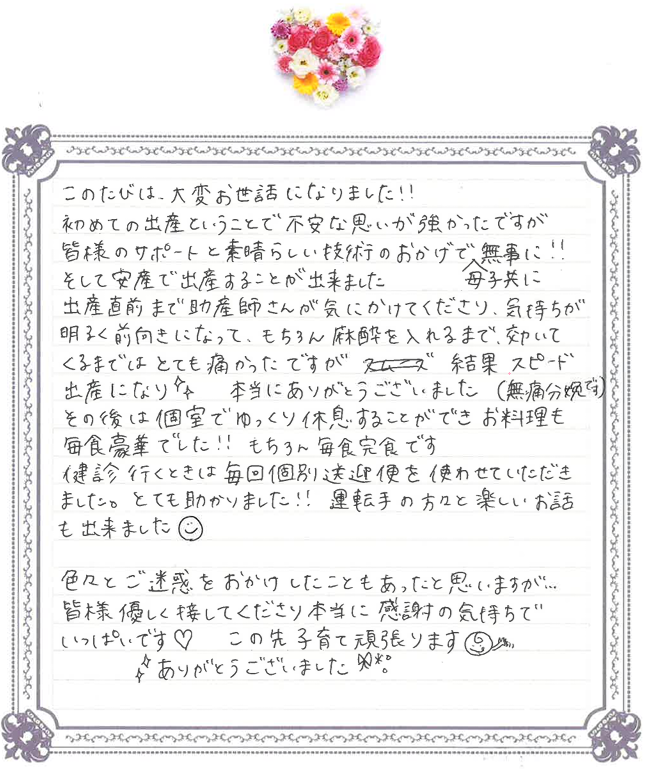 このたびは、大変お世話になりました!!
初めての出産ということで不安な思いが強かったですが
皆様のサポートと素晴らしい技術のおかげで無事に!!
そして安産で出産することが出来ました 母子共に
出産直前まで助産師さんが気にかけてくださり、気持ちが
明るく前向きになって、もちろん麻酔を入れるまで、効いて
くるまではとても痛かったですが 結果 スピード
出産になり 本当にありがとうございました (無痛分娩です)
その後は個室でゆっくり休息することができお料理も
毎食豪華でした!! もちろん毎食完食です
健診行くときは毎回個別送迎便を使わせていただき
ました。とても助かりました!! 運転手の方々と楽しいお話
も出来ました☺
色々とご迷惑をおかけしたこともあったと思いますが…
皆様優しく接してくださり本当に感謝の気持ちで
いっぱいです♡ この先子育て頑張ります
ありがとうございました